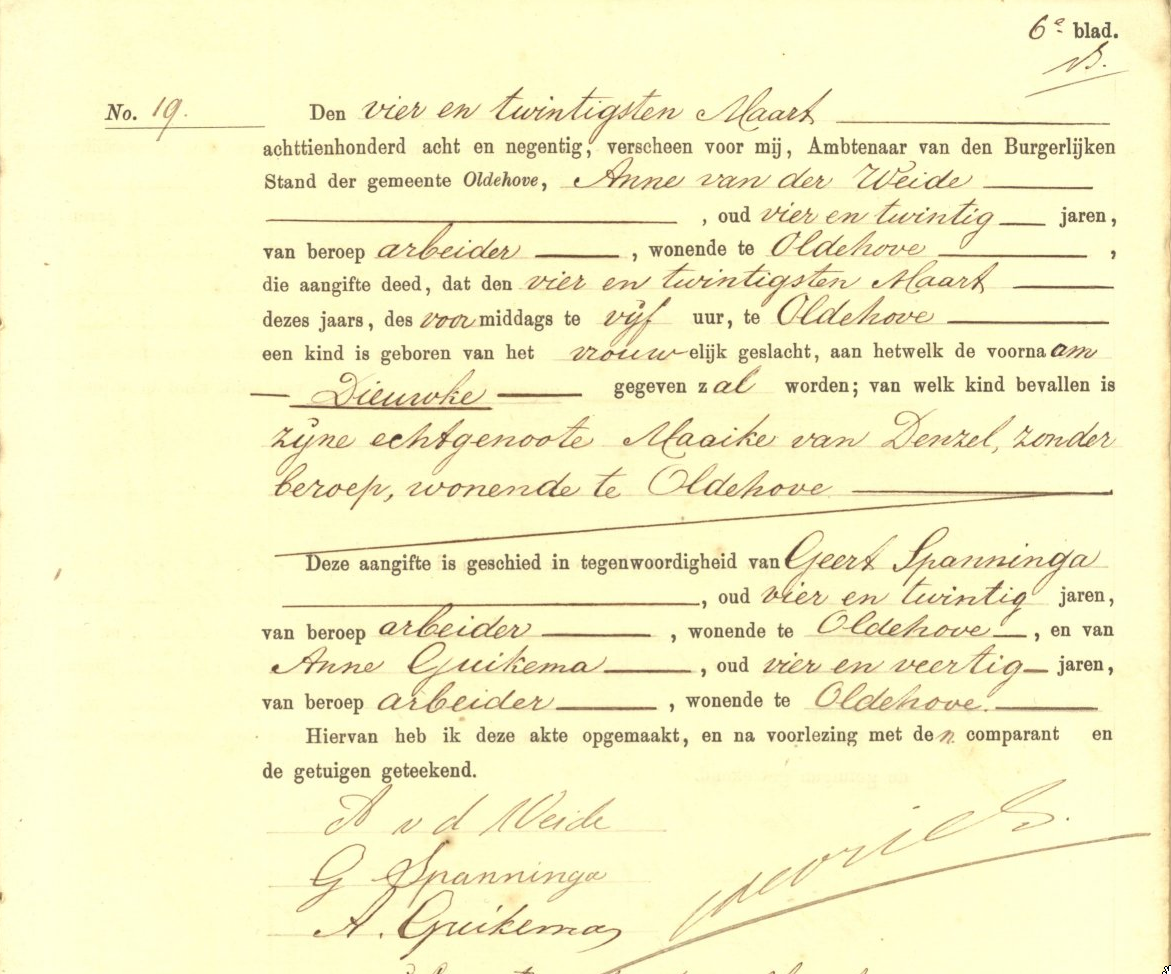 6e blad.
No. 19. Den vier en twintigsten Maart
achttienhonderd acht en negentig, verscheen voor mij, Ambtenaar van den Burgerlijken
Stand der gemeente Oldehove, Anne van der Weide
, oud vier en twintig jaren,
van beroep arbeider , wonende te Oldehove ,
die aangifte deed, dat den vier en twintigsten Maart
dezes jaars, des voormiddags te vijf uur, te Oldehove
een kind is geboren van het vrouwelijk geslacht, aan hetwelk de voornaam
Dieuwke gegeven zal worden; van welk kind bevallen is
zijne echtgenoote Maaike van Denzel, zonder
beroep, wonende te Oldehove
Deze aangifte is geschied in tegenwoordigheid van Geert Spanninga
, oud vier en twintig jaren,
van beroep arbeider , wonende te Oldehove , en van
Anne Guikema , oud vier en veertig jaren,
van beroep arbeider , wonende te Oldehove.
Hiervan heb ik deze akte opgemaakt, en na voorlezing met den comparant en
de getuigen geteekend.
A v d Weide
G Spanninga
A. Guikema